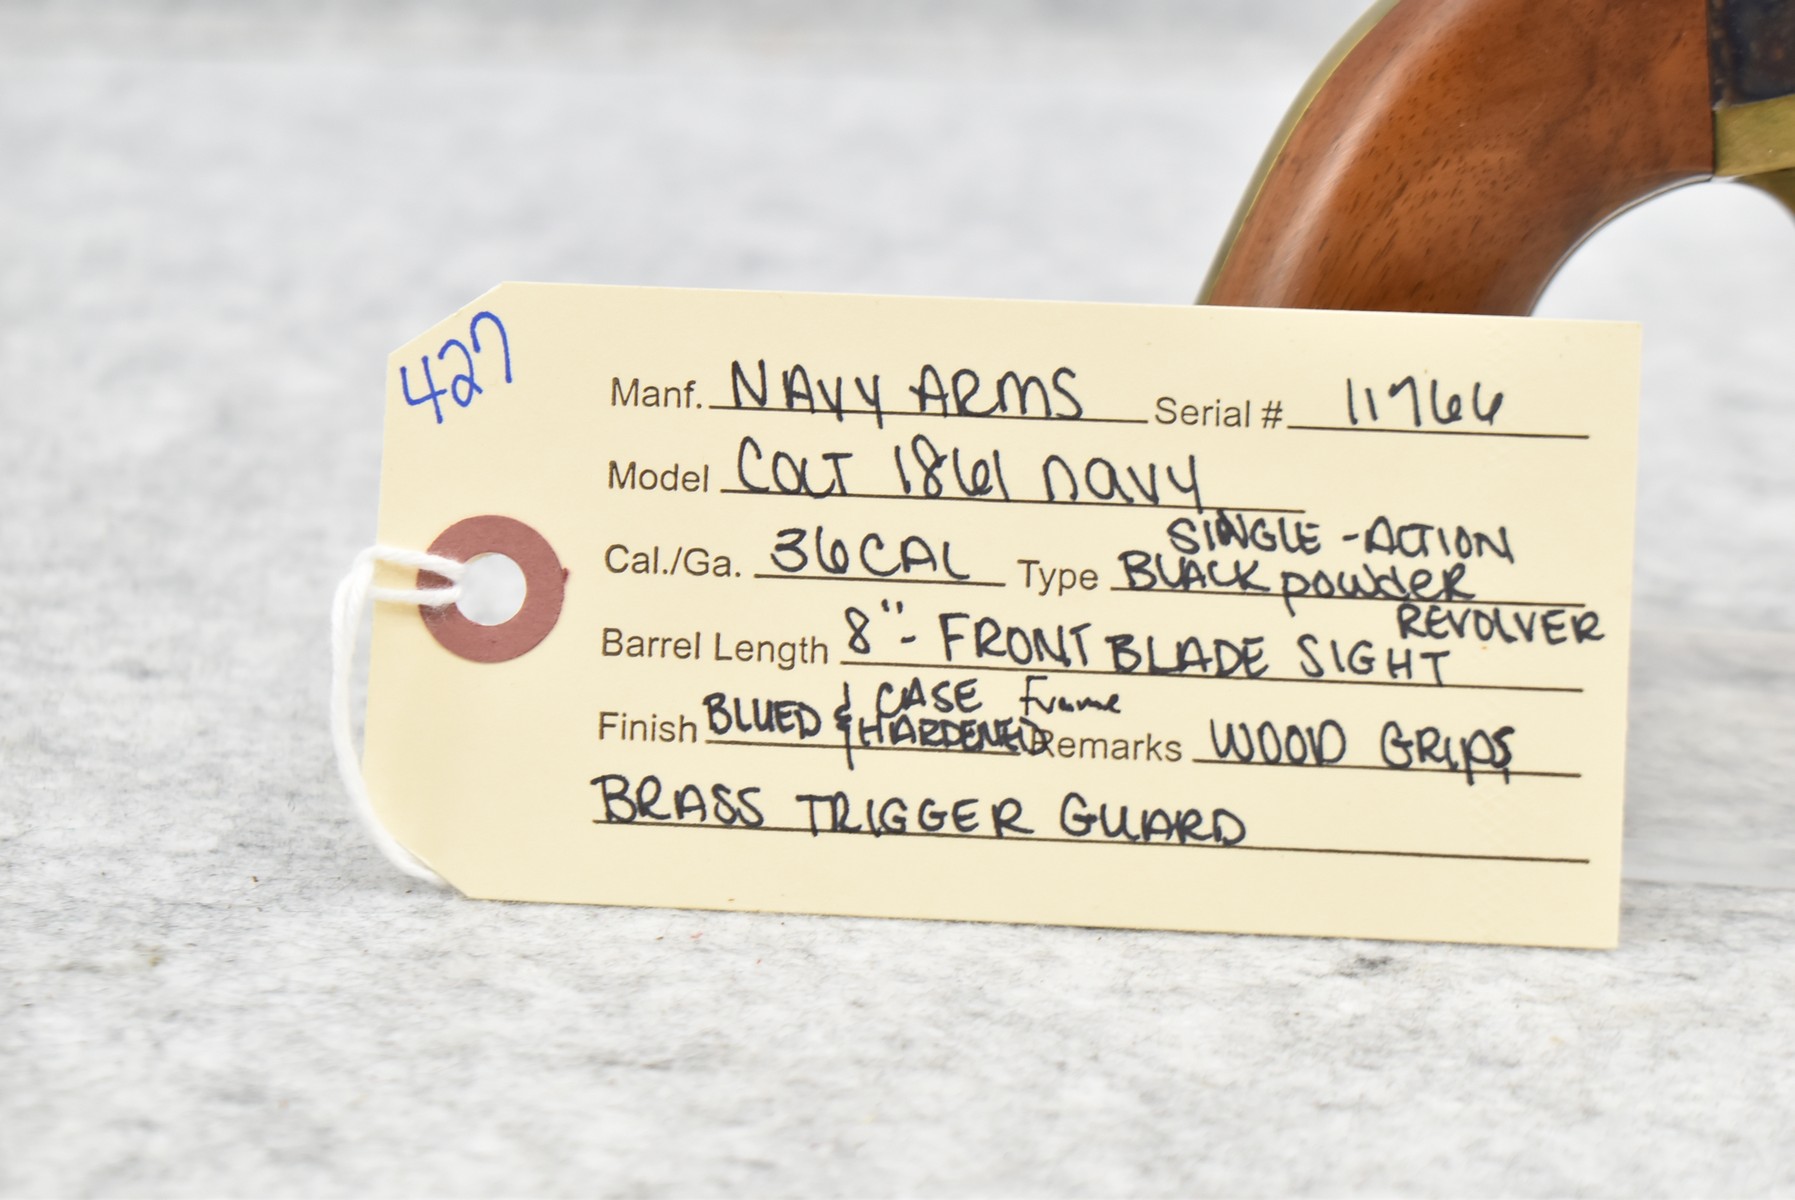 427
Manf. NAVY ARMS Serial # 11766
Model COLT 1861 NAVY
SINGLE-ACTION
Cal./Ga. 36 CAL Type BLACK POWDER
REVOLVER
Barrel Length 8" - FRONT BLADE SIGHT
CASE Frame
Finish BLUED & HARDENED Remarks WOOD GRIPS,
BRASS TRIGGER GUARD